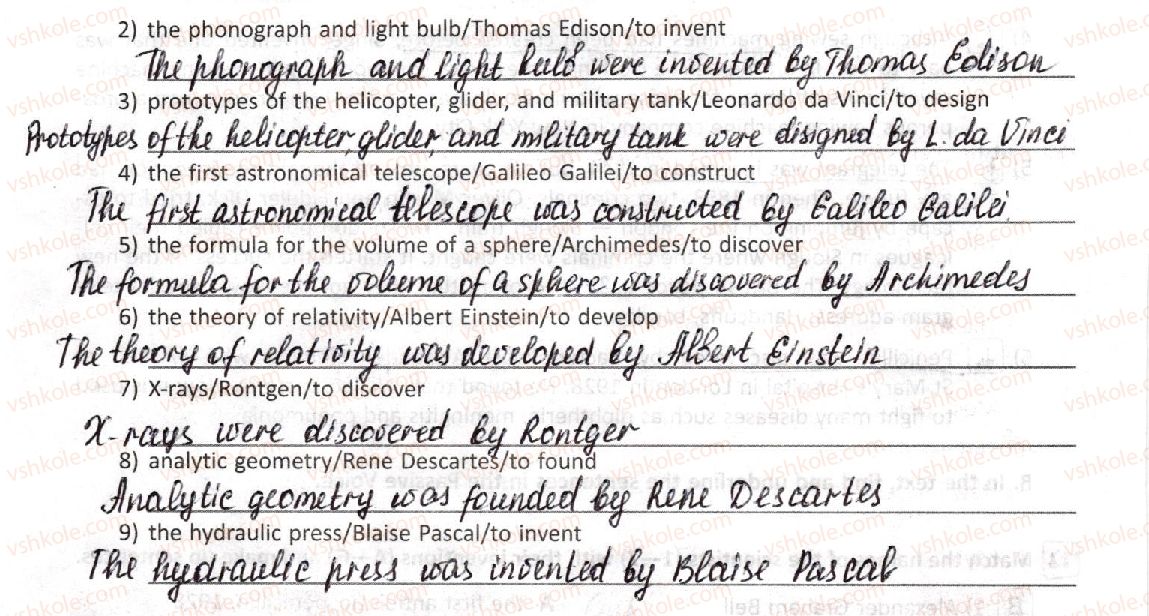 2) the phonograph and light bulb/Thomas Edison/to invent
The phonograph and light bulb were invented by Thomas Edison
3) prototypes of the helicopter, glider, and military tank/Leonardo da Vinci/to design
Prototypes of the helicopter, glider, and military tank were disigned by L. da Vinci
4) the first astronomical telescope/Galileo Galilei/to construct
The first astronomical telescope was constructed by Galileo Galilei
5) the formula for the volume of a sphere/Archimedes/to discover
The formula for the volume of a sphere was discovered by Archimedes
6) the theory of relativity/Albert Einstein/to develop
The theory of relativity was developed by Albert Einstein
7) X-rays/Rontgen/to discover
X-rays were discovered by Rontger
8) analytic geometry/Rene Descartes/to found
Analytic geometry was founded by Rene Descartes
9) the hydraulic press/Blaise Pascal/to invent
The hydraulic press was invented by Blaise Pascal